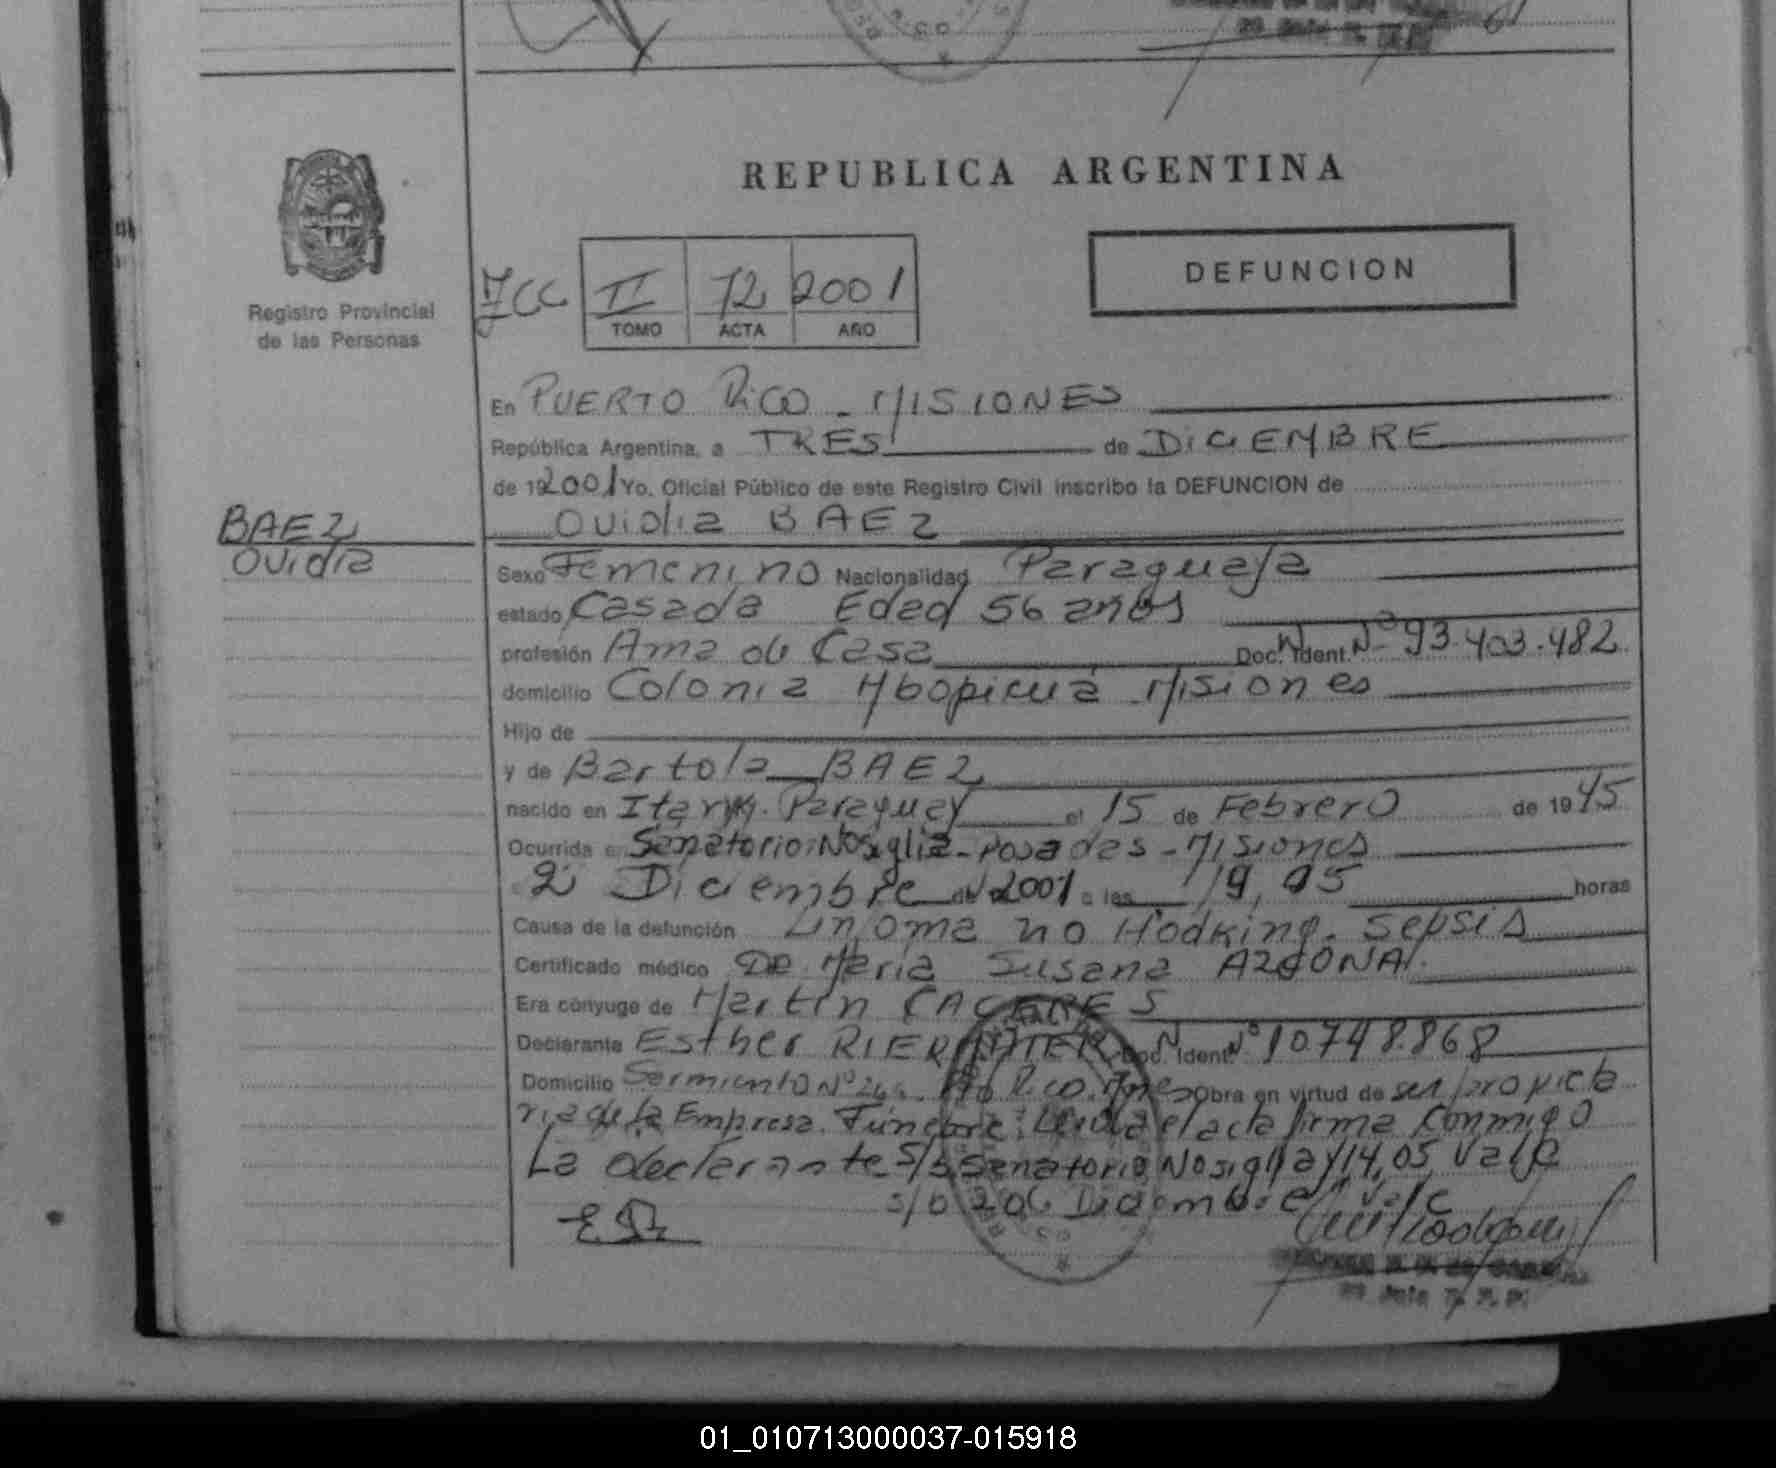 REPUBLICA ARGENTINA
DEFUNCION
Registro Provincial
de las Personas
JCC II 72 2001
TOMO ACTA AÑO
En PUERTO RICO - MISIONES
República Argentina, a TRES de DICIEMBRE
de 192001 Yo, Oficial Público de este Registro Civil inscribo la DEFUNCION de
Ovidia BAEZ
BAEZ
Ovidia
Sexo Femenino Nacionalidad Paraguaya
estado Casada Edad 56 años
profesión Ama de Casa Doc. Ident. Nº 93.403.482
domicilio Colonia Mbopicuá Misiones
Hijo de
y de Bartola BAEZ
nacido en Paraguay el 15 de Febrero de 1945
Ocurrida en Sanatorio Nosiglia - Posadas - Misiones
2 Diciembre de 2001 a las 19,05 horas
Causa de la defunción Linfoma no Hodking. Sepsis
Certificado médico Dra. María Susana
Era cónyuge de Martín CACERES
Declarante Esther Doc. Ident. Nº 10.748.868
Domicilio Sarmiento Nº Pto Rico. Mnes Obra en virtud de ser propieta
ria de la Empresa Fúnebre. Leída el acta firma conmigo
La declarante S/b Sanatorio Nosiglia y 14,05 Vale
s/b 2 de Diciembre Vale
01_010713000037-015918